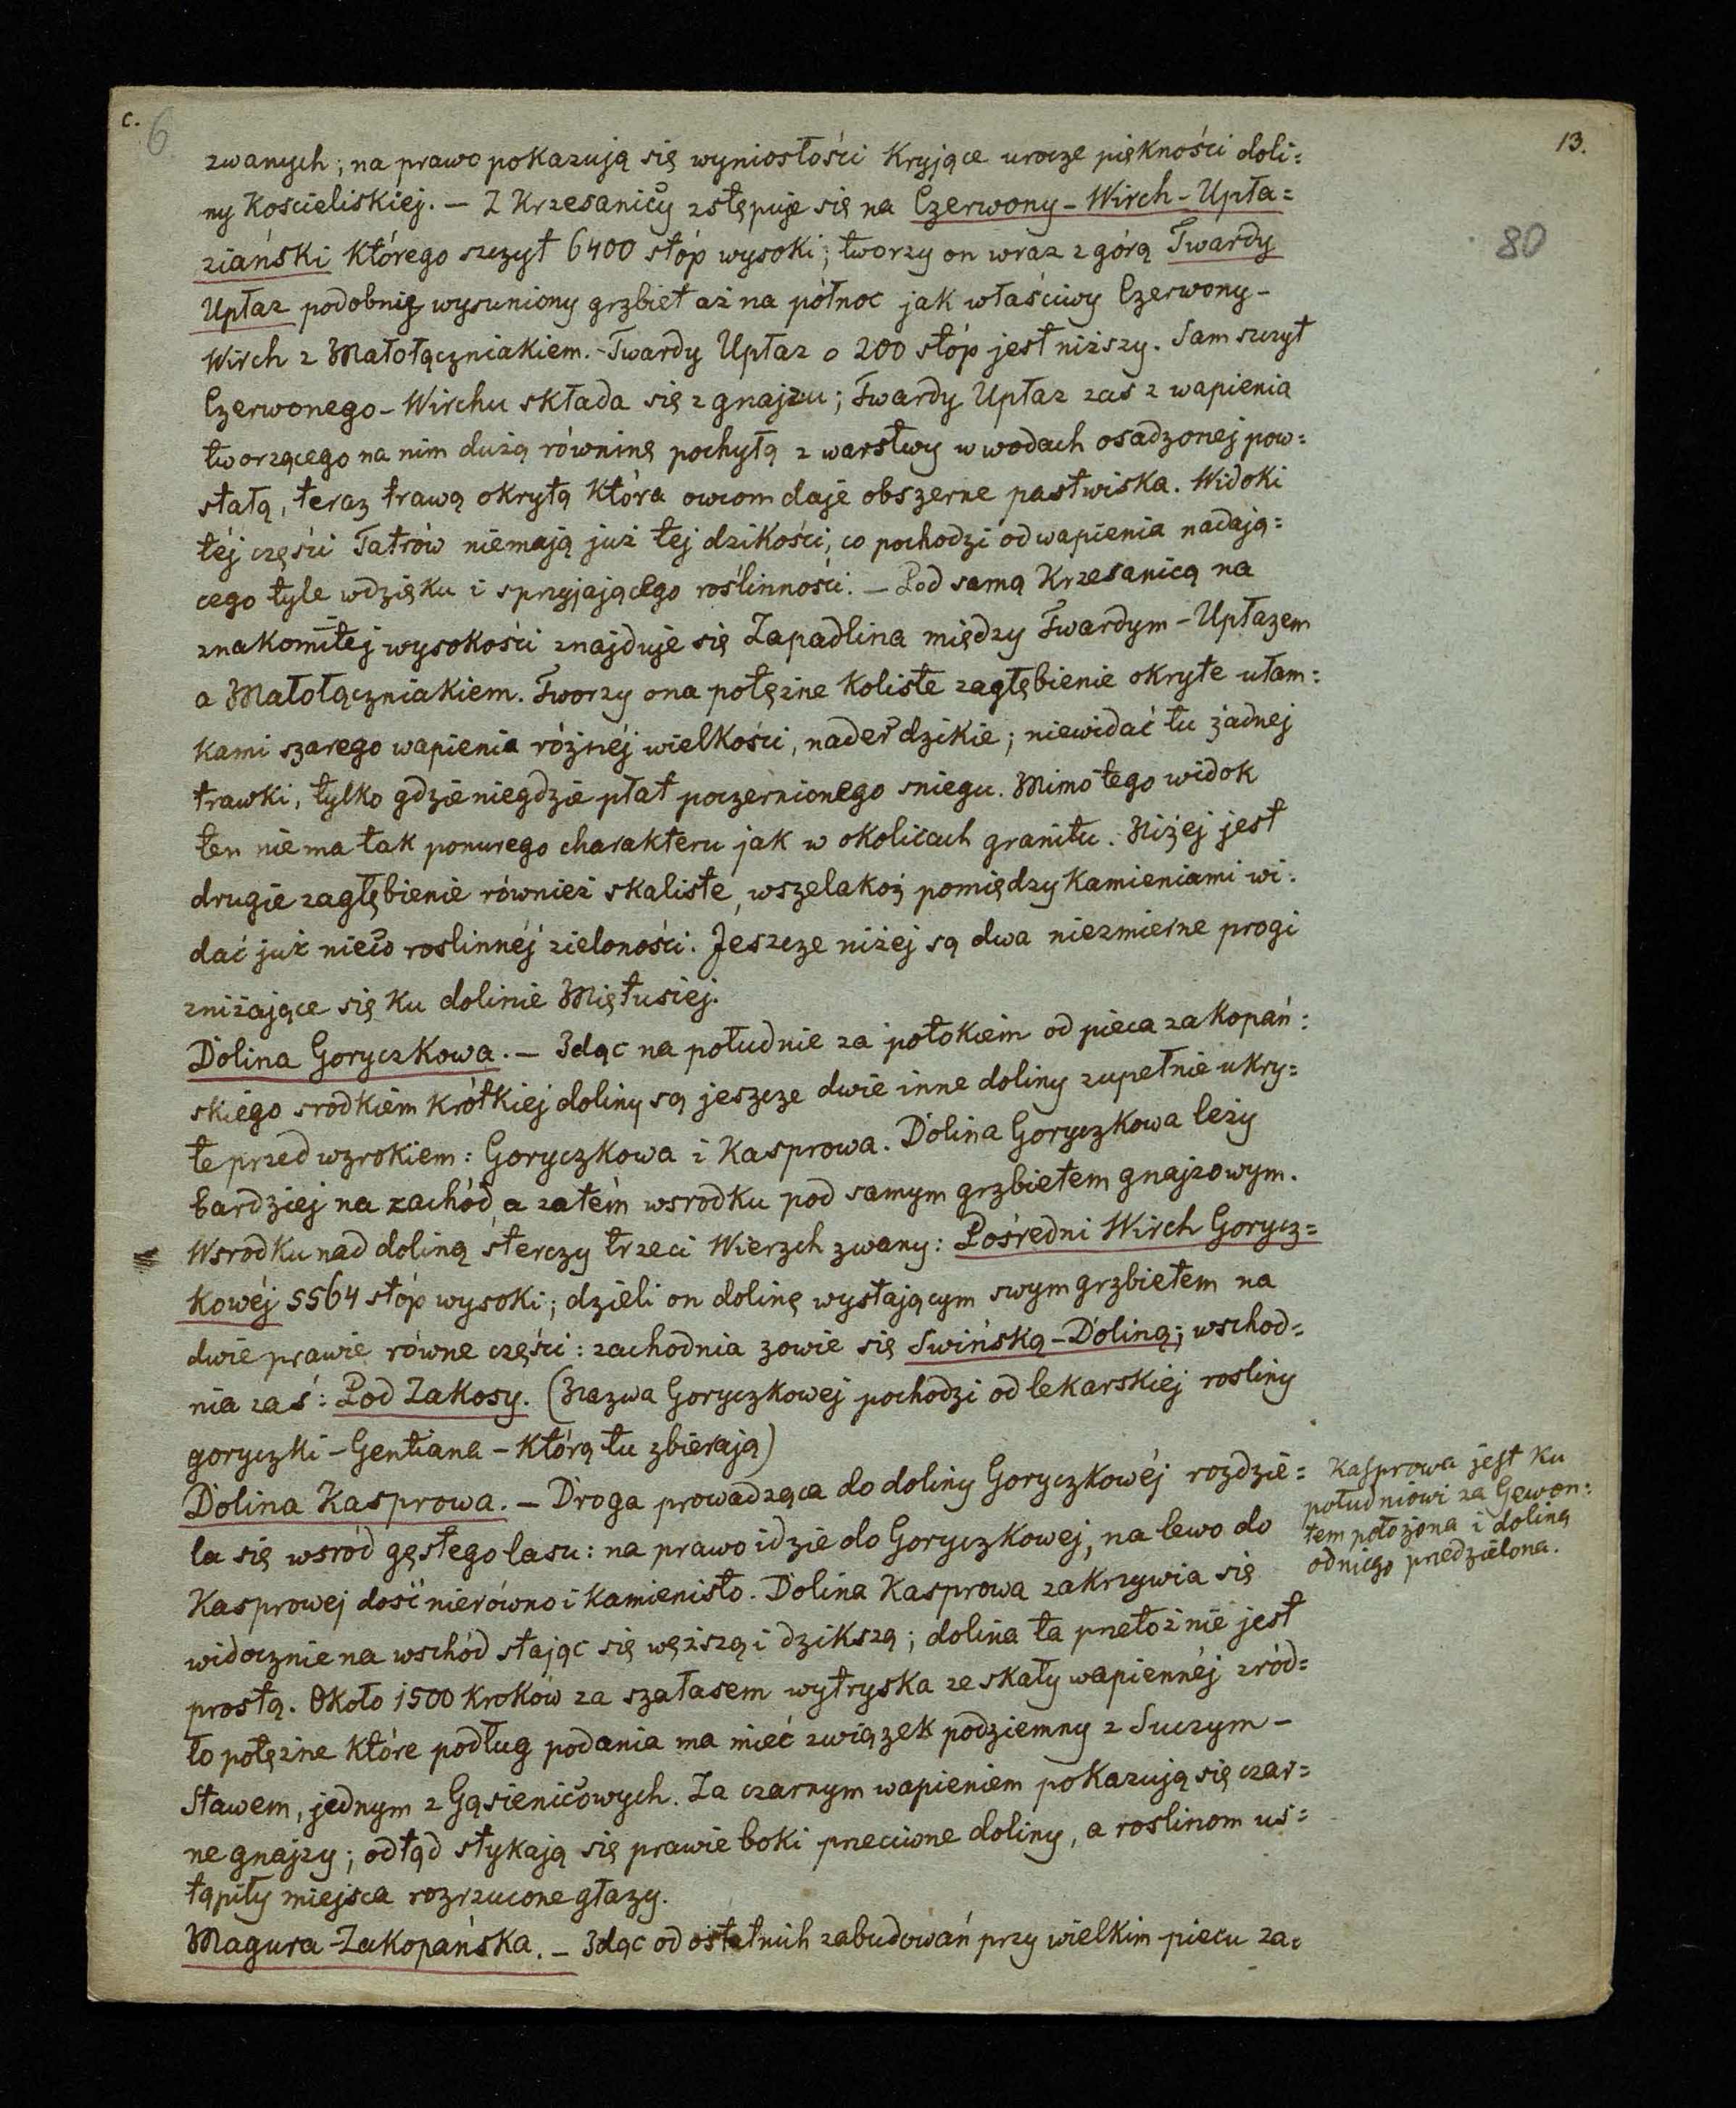 c.
6
13.
80
zwanych; na prawo pokazują się wyniosłości kryjące urocze piękności doli=
ny Kościeliskiej. – Z Krzesanicy zstępuje się na Czerwony-Wirch-Upła=
ziański którego szczyt 6400 stóp wysoki; tworzy on wraz z górą Twardy
Upłaz podobnie wysuniony grzbiet aż na północ jak właściwy Czerwony-
Wirch z Małołączniakiem. – Twardy Upłaz o 200 stóp jest niższy. Sam szczyt
Czerwonego-Wirchu składa się z gnajzu; Twardy Upłaz zas z wapienia
tworzącego na nim dużą równinę pochyłą z warstwy w wodach osadzonej pow=
stałą, teraz trawą okrytą która owcom daje obszerne pastwiska. Widoki
téj części Tatrów niemają już tej dzikości, co pochodzi od wapienia nadają=
cego tyle wdzięku i sprzyjającego roślinności. – Pod samą Krzesanicą na
znakomitej wysokości znajduje się Zapadlina między Twardym-Upłazem
a Małołączniakiem. Tworzy ona potężne koliste zagłębienie okryte ułam=
kami szarego wapienia różnéj wielkości, nader dzikie; niewidać tu żadnej
trawki, tylko gdzieniegdzie płat poczernionego sniegu. Mimo tego widok
ten niema tak ponurego charakteru jak w okolicach granitu. Niżej jest
drugie zagłębienie również skaliste, wszelakoż pomiędzy kamieniami wi=
dać już nieco roslinnéj zieloności. Jeszcze niżej są dwa niezmierne progi
zniżające się ku dolinie Miętusiej.
Dolina Goryczkowa. – Idąc na południe za potokiem od pieca zakopań=
skiego srodkiem krótkiej doliny są jeszcze dwie inne doliny zupełnie ukry=
te przed wzrokiem: Goryczkowa i Kasprowa. Dolina Goryczkowa leży
bardziej na zachód, a zatém wsrodku pod samym grzbietem gnajzowym.
Wsrodku nad doliną sterczy trzeci Wierzch zwany: Pośredni Wirch Gorycz=
kowéj 5564 stóp wysoki; dzieli on dolinę wystającym swym grzbietem na
dwie prawie równe części: zachodnia zowie się Swińską-Doliną; wschod=
nia zaś: Pod Zakosy. (Nazwa Goryczkowej pochodzi od lekarskiej rosliny
goryczki – Gentiana – którą tu zbierają)
Dolina Kasprowa. – Droga prowadząca do doliny Goryczkowéj rozdzie=
la się wsród gęstego lasu: na prawo idzie do Goryczkowej, na lewo do
Kasprowej dość nierówno i kamienisto. Dolina Kasprowa zakrzywia się
widocznie na wschód stając się węższą i dzikszą; dolina ta przetoż nie jest
prostą. Około 1500 kroków za szałasem wytryska ze skały wapiennéj zród=
ło potężne które podług podania ma mieć związek podziemny z Suczym-
Stawem, jednym z Gąsienicowych. Za czarnym wapieniem pokazują się czar=
ne gnajzy; odtąd stykają się prawie boki przeciwne doliny, a roslinom us=
tąpiły miejsca rozrzucone głazy.
Magura-Zakopańska. – Idąc od ostatnich zabudowań przy wielkim piecu za=
Kasprowa jest ku
południowi za Gewon=
tem położona i doliną
od niego przedzielona.